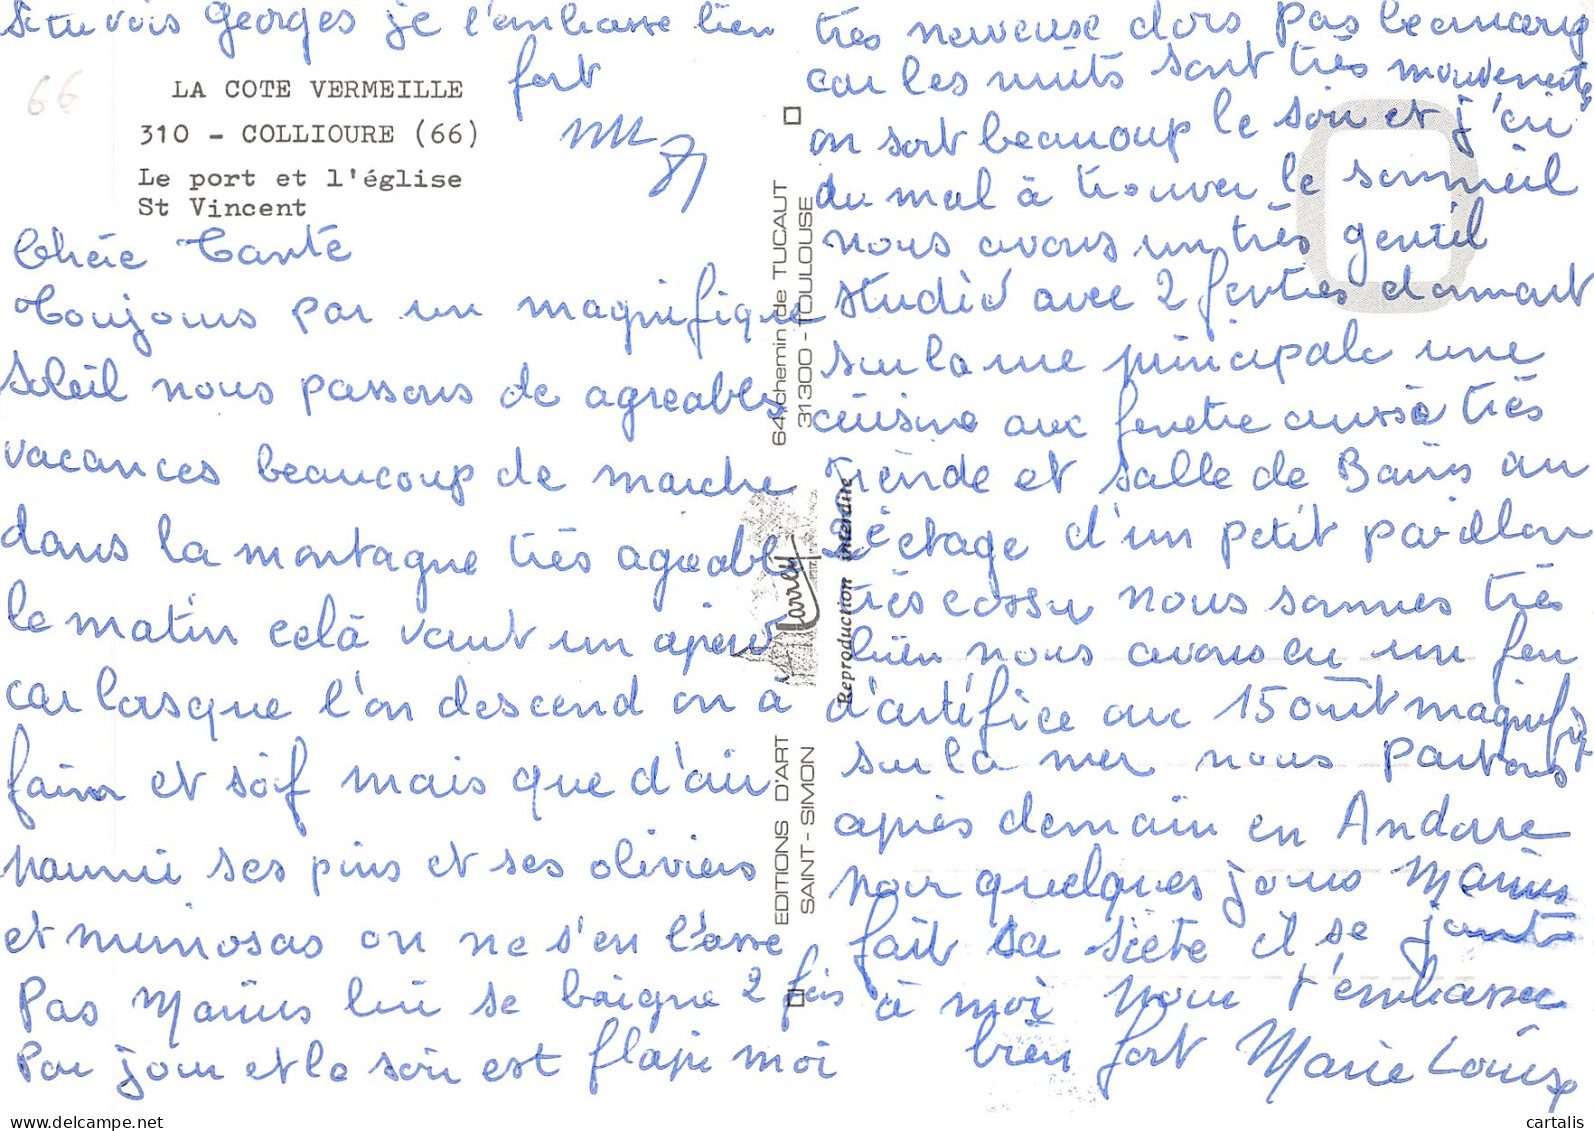 Si tu vois Georges je l'embrasse bien
fort
66
LA COTE VERMEILLE
310 - COLLIOURE (66)
Le port et l'église
St Vincent
Chère Tante
Toujours par un magnifique
soleil nous passons de agreables
vacances beaucoup de marche
dans la montagne très agréable
le matin celà vaut un apero
car lorsque l'on descend on à
faim et soif mais que d'air
parmi ses pins et ses oliviers
et mimosas on ne s'en lasse
Pas Marius lui se baigne 2 fois
Par jour et le soir est flapi moi
très nerveuse dors pas beaucoup
car les nuits sont très mouvementés
on sort beaucoup le soir et j'ai
du mal à trouver le sommeil
nous avons un très gentil
studio avec 2 fentres donnant
sur la rue principale une
cuisine avec fenetre aussi très
grande et salle de Bains au
2e etage d'un petit pavillon
très cossu nous sommes très
bien nous avons eu un feu
d'artifice au 15 août magnifique
sur la mer nous Partons
après demain en Andore
pour quelques jours Marius
fait sa sieste il se joint
à moi pour t'embrasser
bien fort Marie Louise
EDITIONS D'ART
SAINT-SIMON
Larrey
64, chemin de TUCAUT
31300 - TOULOUSE
Reproduction interdite
cartalis delcampe.net